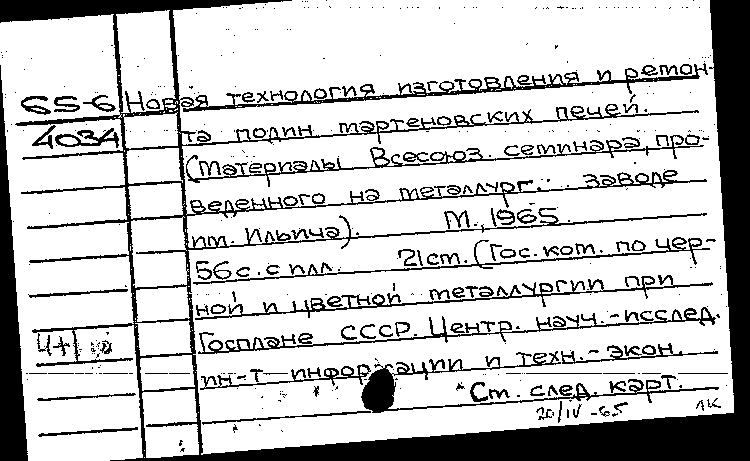 65-6 Новая технология изготовления и ремон-
4034 та подин мартеновских печей.
(Материалы Всесоюз. семинара, про-
веденного на металлург. заводе
им. Ильича). М., 1965.
56 с. с илл. 21 см. (Гос. ком. по чер-
ной и цветной металлургии при
Госплане СССР. Центр. науч.-исслед.
ин-т информации и техн.-экон.
Ст. след. карт.
20/IV-65